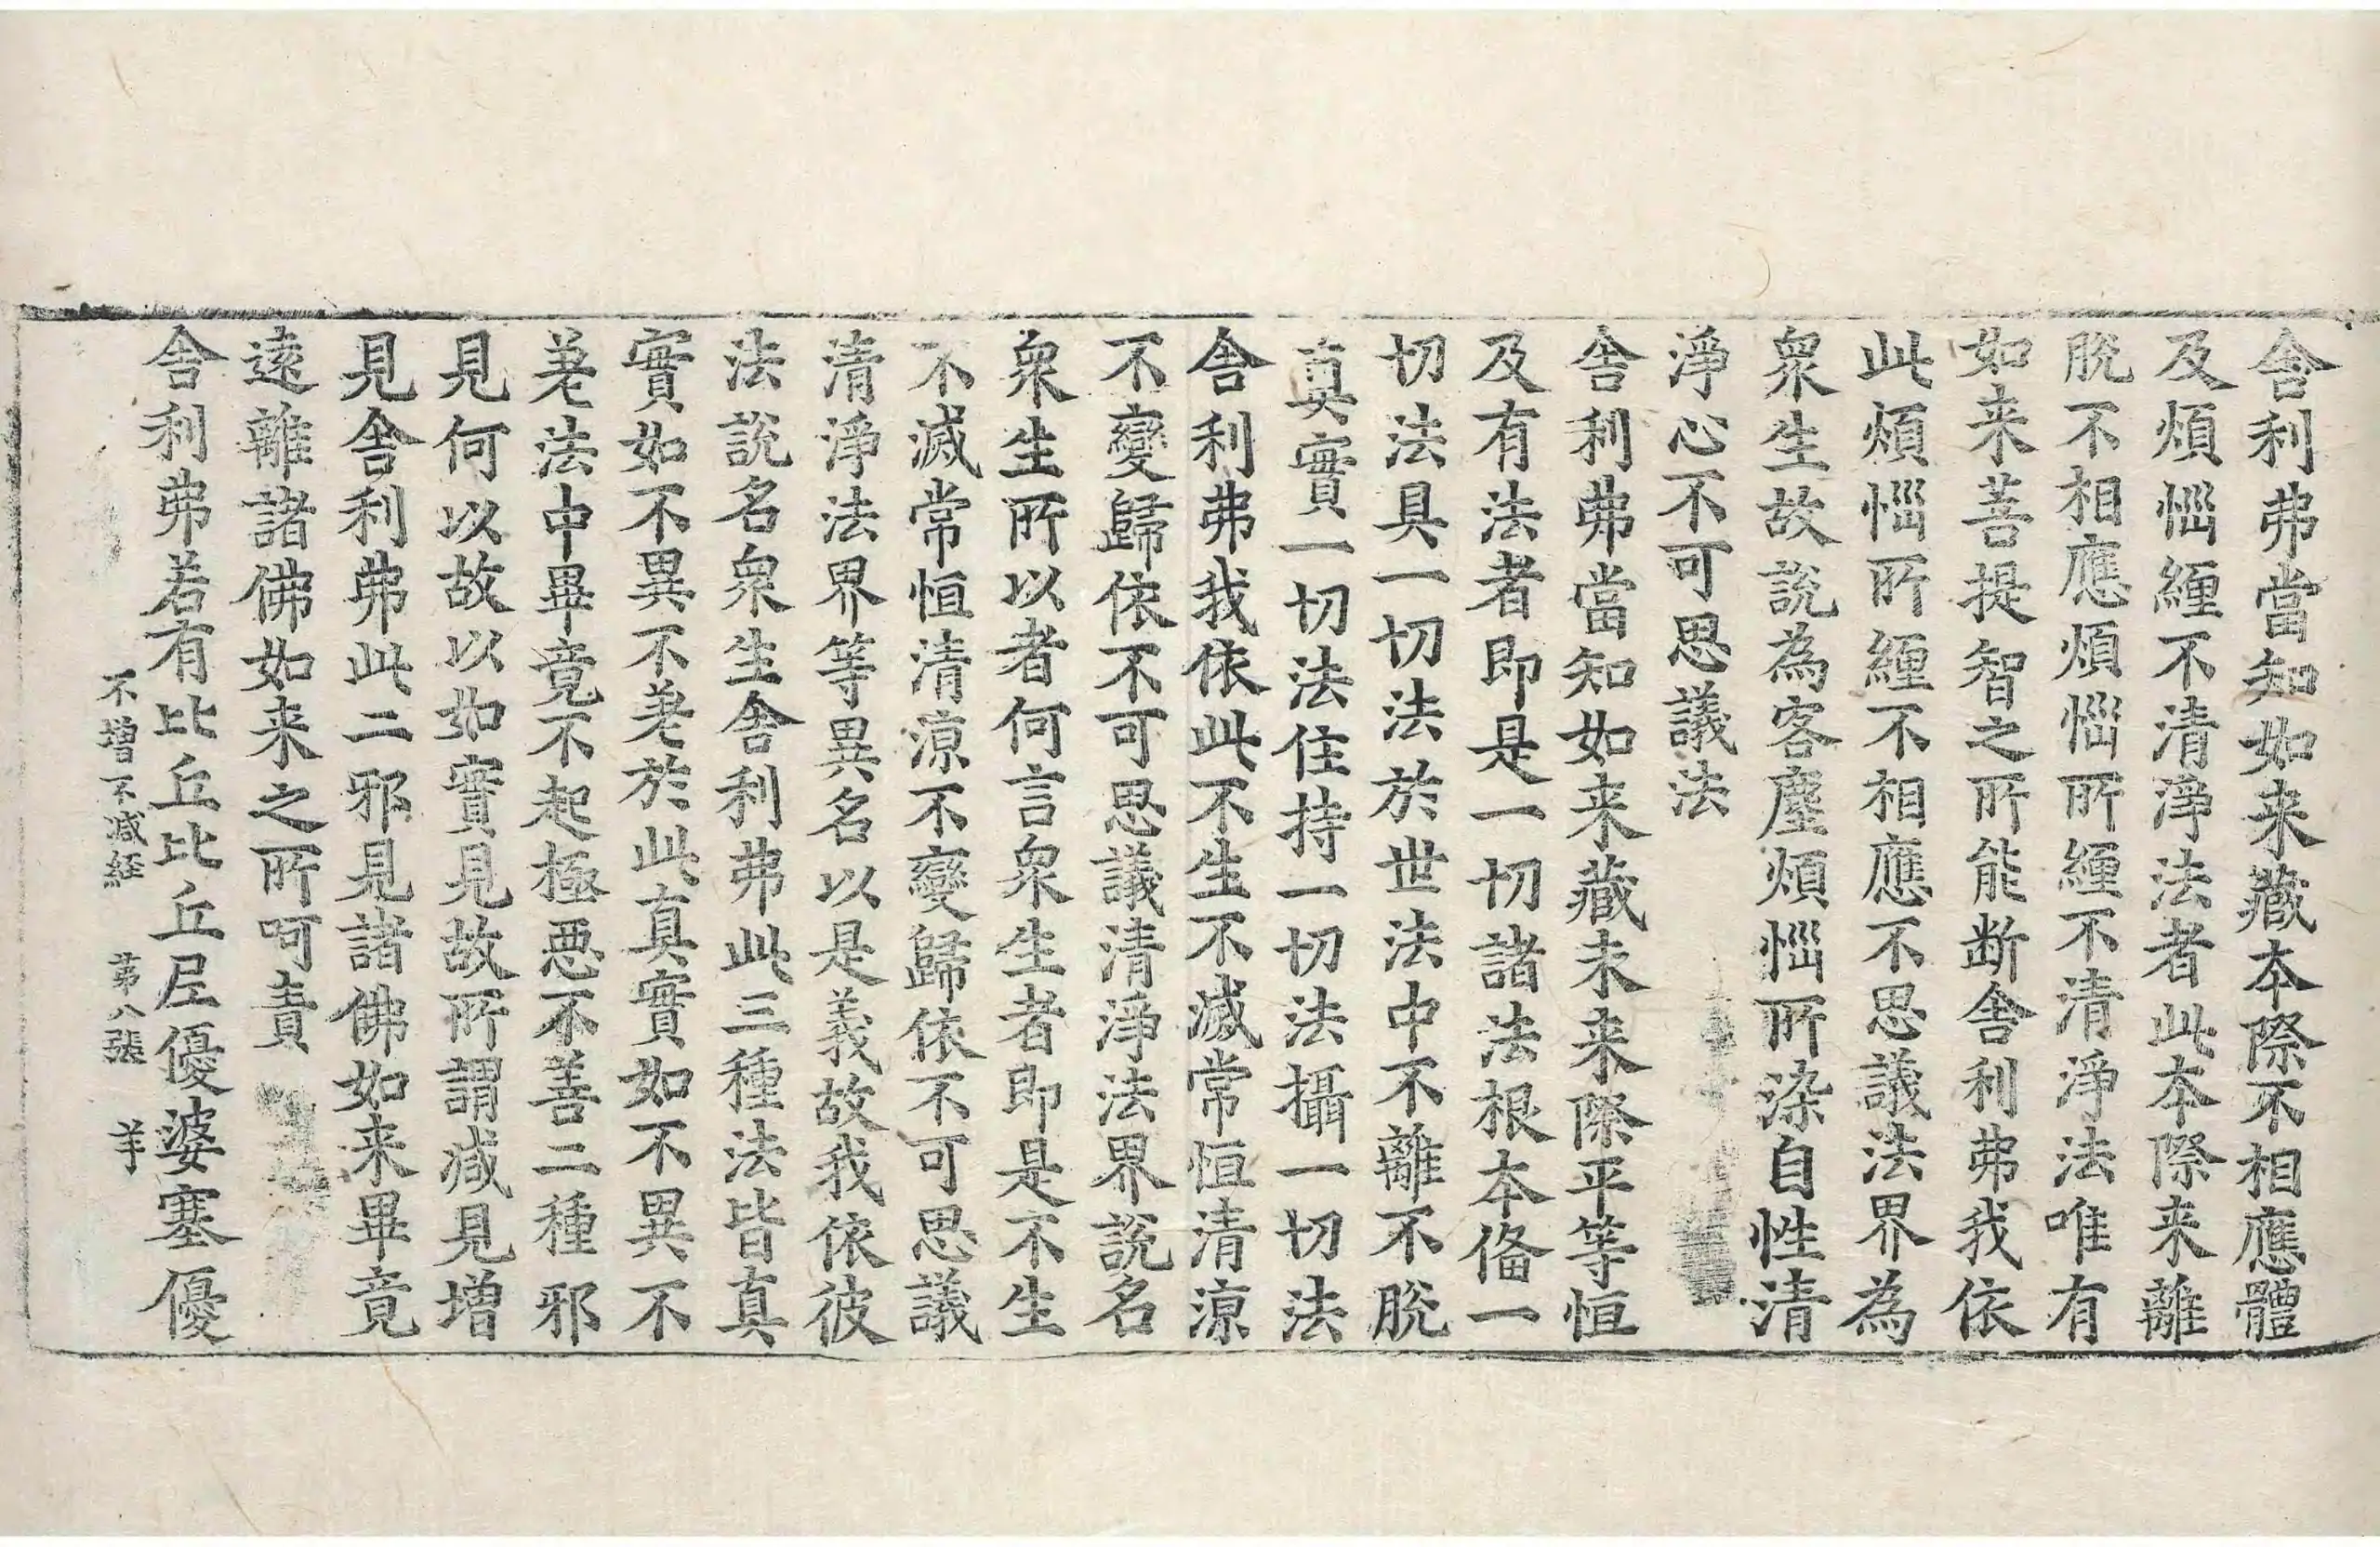 舎利弗當知如来藏本際不相應體
及煩惱纏不清淨法者此本際来離
脫不相應煩惱所纏不清淨法唯有
如来菩提智之所能断舎利弗我依
此煩惱所纏不相應不思議法界為
衆生故說為客塵煩惱所染自性清
淨心不可思議法
舎利弗當知如来藏未来際平等恒
及有法者即是一切諸法根本俻一
切法具一切法於世法中不離不脫
真實一切法住持一切法攝一切法
舎利弗我依此不生不滅常恒清涼
不變歸依不可思議清淨法界說名
衆生所以者何言衆生者即是不生
不滅常恒清涼不變歸依不可思議
清淨法界等異名以是義故我依彼
法說名衆生舎利弗此三種法皆真
實如不異不差於此真實如不異不
差法中畢竟不起極惡不善二種邪
見何以故以如實見故所謂減見増
見舎利弗此二邪見諸佛如来畢竟
遠離諸佛如来之所呵責
舎利弗若有比丘比丘尼優婆塞優
不増不减経 第八張 羊